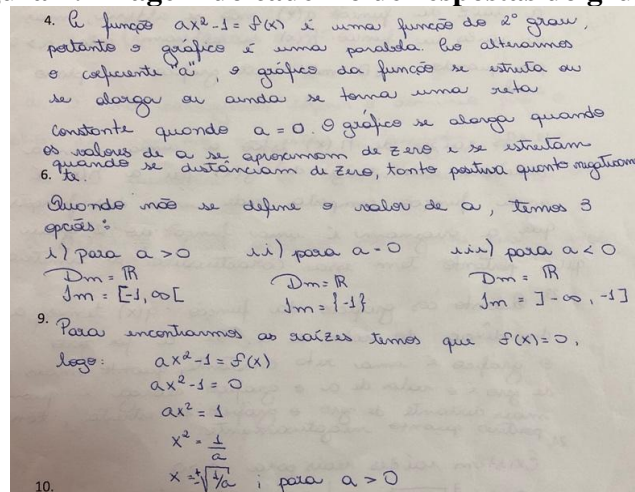 4. A função ax² - 1 = f(x) é uma função do 2° grau,
portanto o gráfico é uma parábola. Ao alterarmos
o coeficiente "a", o gráfico da função se estreita ou
se alarga ou ainda se torna uma reta
constante quando a = 0. O gráfico se alarga quando
os valores de a se aproximam de zero e se estreitam
quando se distanciam de zero, tanto positiva quanto negativamen
te.
6.
Quando não se define o valor de a, temos 3
opções:
i) para a > 0 ii) para a = 0 iii) para a < 0
Dm = ℝ Dm = ℝ Dm = ℝ
Im = [-1, ∞[ Im = {-1} Im = ]-∞, -1]
9.
Para encontrarmos as raízes temos que f(x) = 0,
logo: ax² - 1 = f(x)
ax² - 1 = 0
ax² = 1
x² = 1/a
x = ±√1/a ; para a > 0
10.